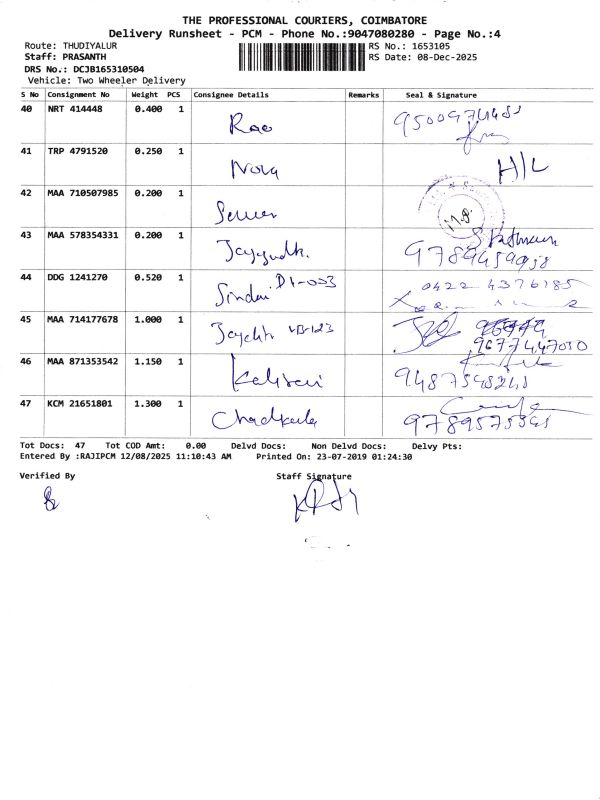 THE PROFESSIONAL COURIERS, COIMBATORE
Delivery Runsheet - PCM - Phone No.:9047080280 - Page No.:4
Route: THUDIYALUR
RS No.: 1653105
Staff: PRASANTH
RS Date: 08-Dec-2025
DRS No.: DCJB165310504
Vehicle: Two Wheeler Delivery
S No Consignment No Weight PCS Consignee Details Remarks Seal & Signature
40 NRT 414448 0.400 1 Rao
41 TRP 4791520 0.250 1 Nova H/L
42 MAA 710507985 0.200 1
43 MAA 578354331 0.200 1
44 DDG 1241270 0.520 1 D1-003 0422 4376185
45 MAA 714177678 1.000 1
9677447030
46 MAA 871353542 1.150 1
47 KCM 21651801 1.300 1
Tot Docs: 47 Tot COD Amt: 0.00 Delvd Docs: Non Delvd Docs: Delvy Pts:
Entered By :RAJIPCM 12/08/2025 11:10:43 AM Printed On: 23-07-2019 01:24:30
Verified By Staff Signature